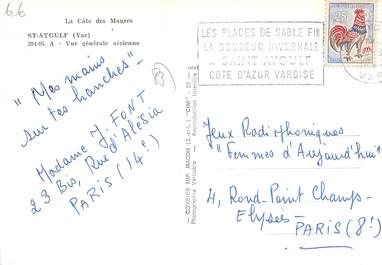 6€
La Côte des Maures
ST-AYGULF (Var)
291-05 A - Vue générale aérienne
LES PLAGES DE SABLE FIN
LA DOUCEUR HIVERNALE
SAINT AYGULF
COTE D'AZUR VAROISE
"Mes mains
sur tes hanches" -
Madame J. FONT
23 Bis, Rue d'Alésia
PARIS (14e)
COMBIER IMP. MACON (S.-et-L.) "CIM"
Photographie Véritable
Reproduction Interdite
Jeux Radiophoniques
"Femmes d'Aujourd'hui"
4, Rond-Point Champs-
Elysées -
PARIS (8e)